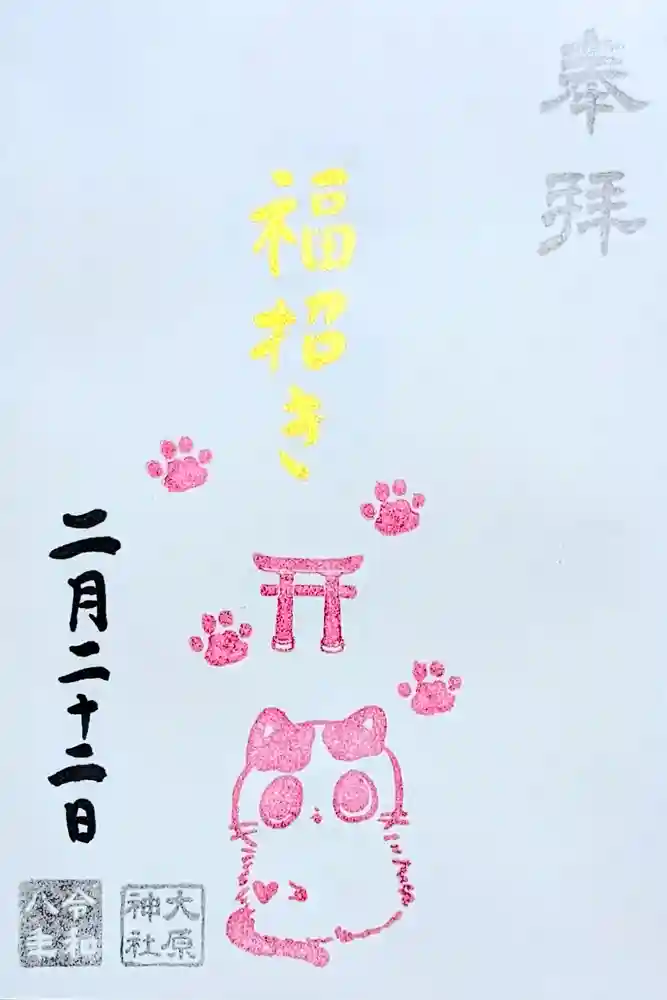 奉拝
福招き
二月二十二日
大原神社
令和八年